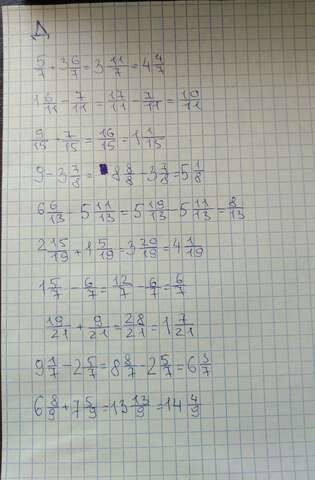 Д
5/7 + 3 6/7 = 3 11/7 = 4 4/7
1 6/11 - 7/11 = 17/11 - 7/11 = 10/11
9/15 + 7/15 = 16/15 = 1 1/15
9 - 3 7/8 = 8 8/8 - 3 7/8 = 5 1/8
6 6/13 - 5 11/13 = 5 19/13 - 5 11/13 = 8/13
2 15/19 + 1 5/19 = 3 20/19 = 4 1/19
1 5/7 - 6/7 = 12/7 - 6/7 = 6/7
19/21 + 9/21 = 28/21 = 1 7/21
9 1/7 - 2 5/7 = 8 8/7 - 2 5/7 = 6 3/7
6 8/9 + 7 5/9 = 13 13/9 = 14 4/9